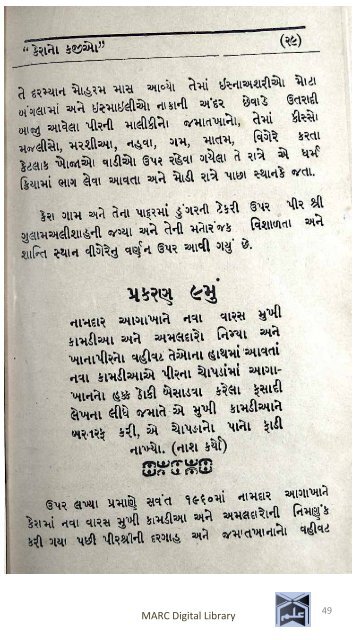 “ કેરાનો કજીઓ” (૨૯)
તે દરમ્યાન મોહરમ માસ આવ્યો તેમાં ઈસ્નાઅશરીઓ મોટા
બંગલામાં અને ઈસ્માઈલીઓ નાકાની અંદર છેવાડે ઉતરાદી
બાજી આવેલા પીરની માલીકીનો જમાતખાનો, તેમાં કીસ્સો
મજલીસો, મરશીઆ, નહવા, ગમ, માતમ, વિગેરે કરતા
કેટલાક ખોજાઓ વાડીઓ ઉપર રહેવા ગયેલા તે રાત્રે એ ધર્મ
ક્રિયામાં ભાગ લેવા આવતા અને મોડી રાત્રે પાછા સ્થાનકે જતા.
કેરા ગામ અને તેના પાદરમાં ડુંગરની ટેકરી ઉપર પીર શ્રી
ગુલામઅલીશાહની જગ્યા અને તેની મનોરંજક વિશાળતા અને
શાન્તિ સ્થાન વીગેરેનુ વર્ણન ઉપર આવી ગયું છે.
પ્રકરણ ૯મું
નામદાર આગાખાને નવા વારસ મુખી
કામડીઆ અને અમલદારો નિમ્યા અને
ખાનાપીરનો વહીવટ તેઓના હાથમાં આવતાં
નવા કામડીઆએ પીરના ચોપડાંમાં આગા-
ખાનનો હક્ક ઠોકી બેસાડવા કરેલા ફસાદી
લેખના લીધે જમાતે એ મુખી કામડીઆને
બરતરફ કરી, એ ચોપડાનો પાનો ફાડી
નાખ્યો. (નાશ કર્યો)
ઉપર લખ્યા પ્રમાણે સવંત ૧૯૬૦માં નામદાર આગાખાને
કેરામાં નવા વારસ મુખી કામડીઆ અને અમલદારોની નિમણુંક
કરી ગયા પછી પીરશ્રીની દરગાહ અને જમાતખાનાનો વહીવટ
MARC Digital Library 49